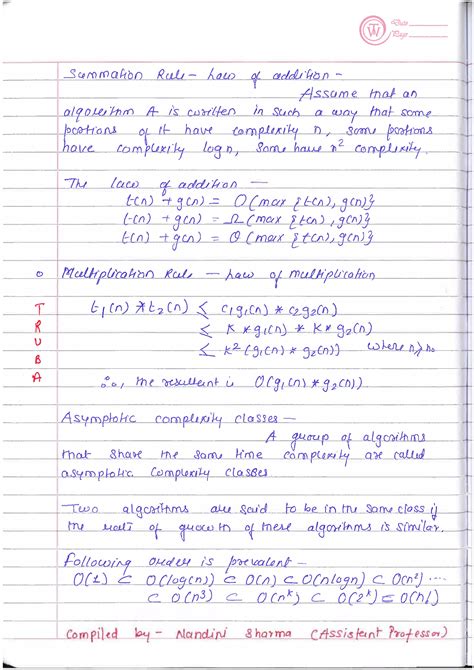 Date
Page
Summation Rule - Law of addition -
Assume that an
algorithm A is written in such a way that some
portions of it have complexity n, some portions
have complexity logn, some have n² complexity.
The law of addition -
t(n) + g(n) = O(max {t(n), g(n)}
t(n) + g(n) = Ω(max {t(n), g(n)}
t(n) + g(n) = Θ(max {t(n), g(n)}
o Multiplication Rule - Law of multiplication
t₁(n) * t₂(n) ≤ c₁g₁(n) * c₂g₂(n)
≤ K * g₁(n) * K * g₂(n)
≤ K² (g₁(n) * g₂(n)) where n≥n₀
∴, the resultent is O(g₁(n) * g₂(n)).
TRUBA
Asymptotic complexity classes -
A group of algorithms
that share the same time complexity are called
asymptotic complexity classes
Two algorithms are said to be in the same class if
the rate of growth of these algorithms is similar.
Following order is prevalent -
O(1) ⊂ O(log(n)) ⊂ O(n) ⊂ O(nlogn) ⊂ O(n²) ....
⊂ O(n³) ⊂ O(nᵏ) ⊂ O(2ᵏ) ⊂ O(n!)
Compiled by - Nandini Sharma (Assistant Professor)